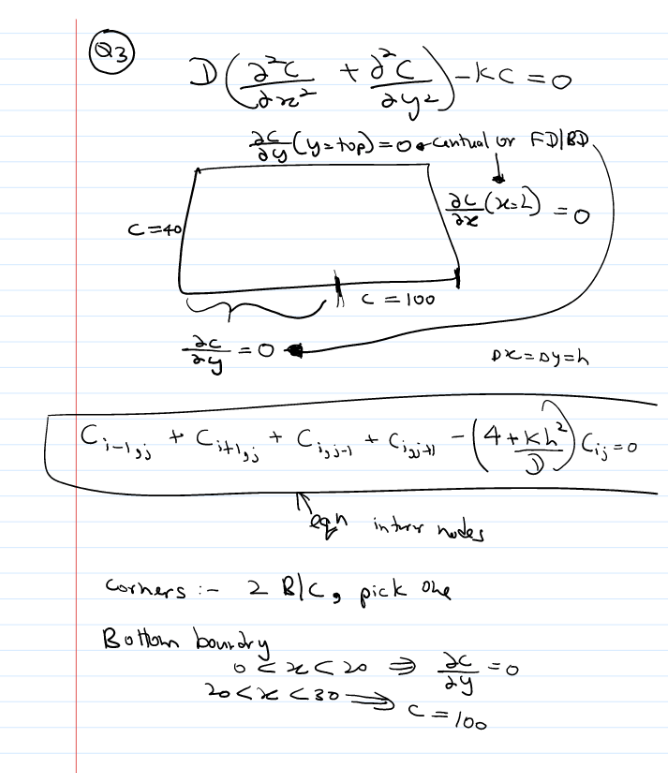 Q3
D(∂²C/∂x² + ∂²C/∂y²) - KC = 0
∂C/∂y (y=top) = 0 ← central or FD/BD
∂C/∂x (x=L) = 0
C=40
C = 100
∂C/∂y = 0
Dx=Dy=h
C_{i-1,j} + C_{i+1,j} + C_{i,j-1} + C_{i,j+1} - (4 + Kh²/D) C_{ij} = 0
eqn inter nodes
Corners :- 2 B/C, pick one
Bottom boundry
0 < x < 20 ⇒ ∂C/∂y = 0
20 < x < 30 ⇒ C = 100